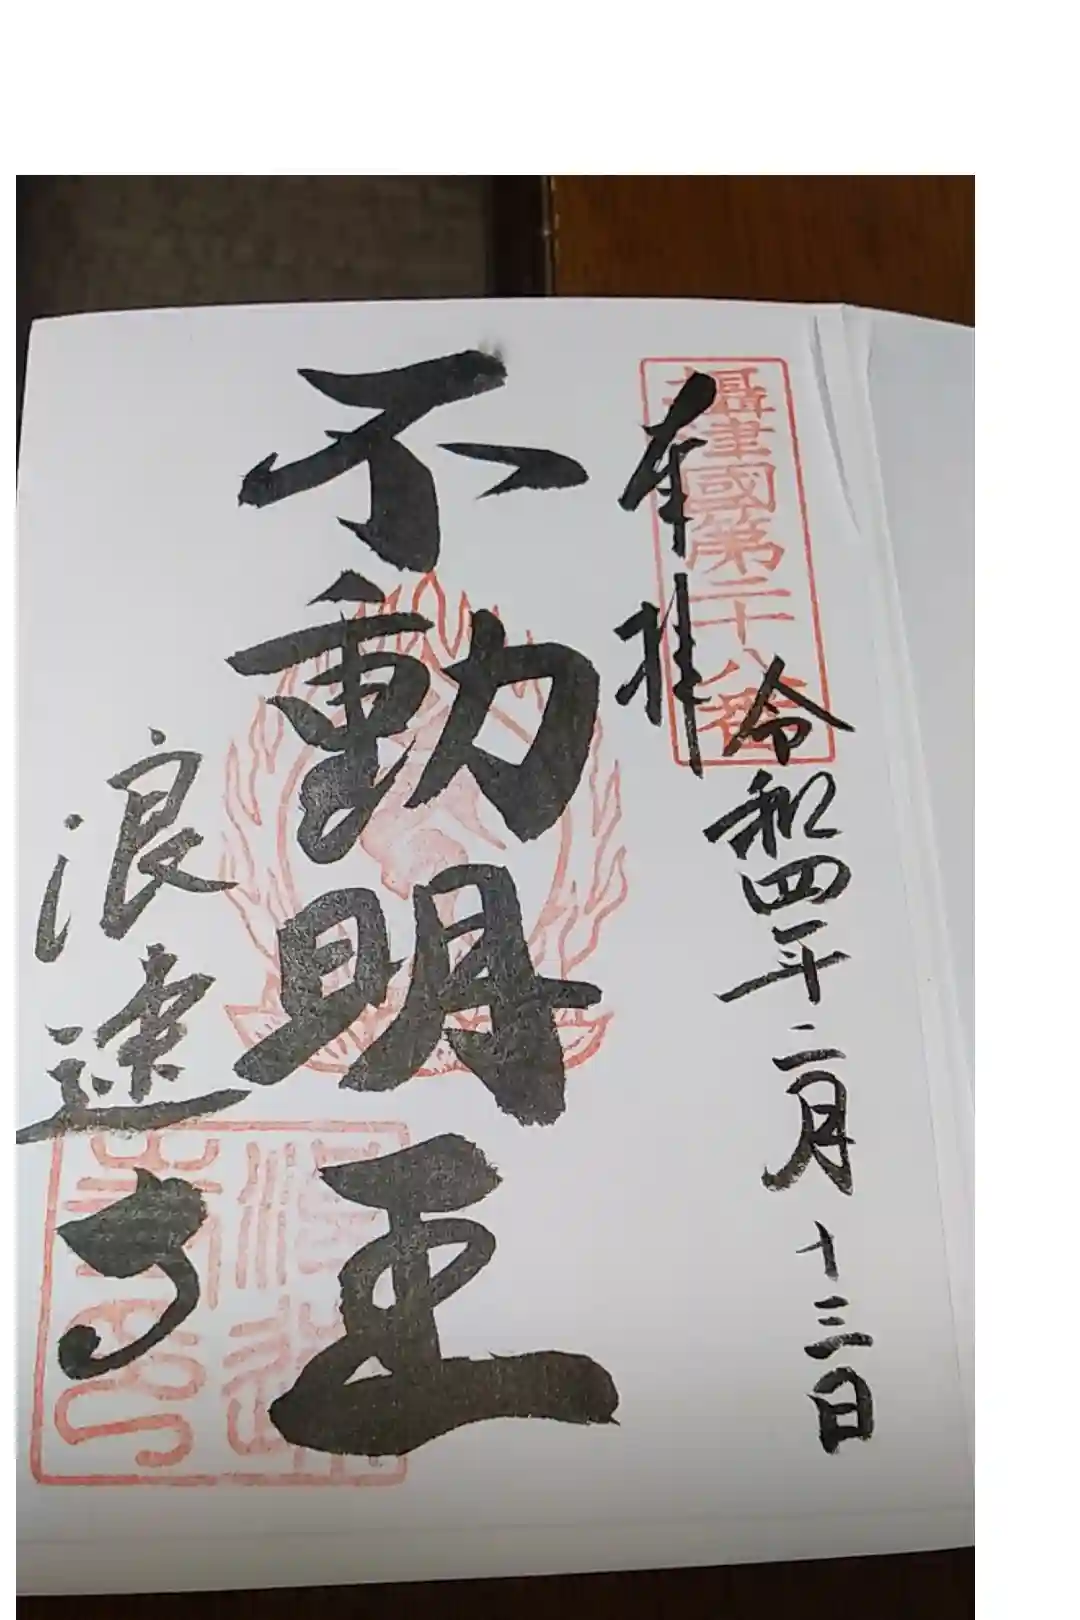 攝津國第二十八番
令和四年二月十三日
奉拝
不動明王
浪速寺